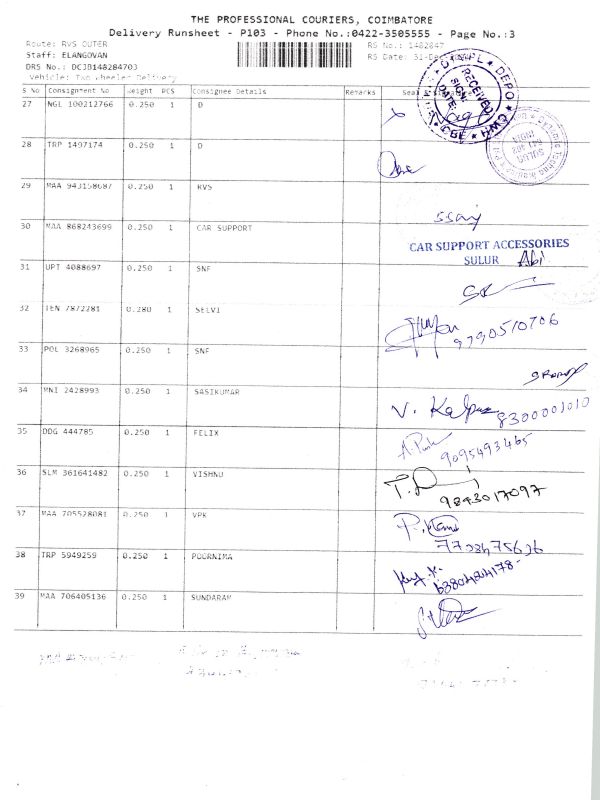 THE PROFESSIONAL COURIERS, COIMBATORE
Delivery Runsheet - P103 - Phone No.:0422-3505555 - Page No.:3
Route: RVS OUTER RS No.: 1482847
Staff: ELANGOVAN RS Date: 31-Dec
DRS No.: DCJB148284703
Vehicle: Two Wheeler Delivery
S No Consignment No Weight PCS Consignee Details Remarks
27 NGL 100212766 0.250 1 D
28 TRP 1497174 0.250 1 D
29 MAA 943158687 0.250 1 RVS
30 MAA 868243699 0.250 1 CAR SUPPORT
CAR SUPPORT ACCESSORIES
SULUR Abi
31 UPT 4088697 0.250 1 SNF
32 TEN 7872281 0.280 1 SELVI
9790510706
33 POL 3268965 0.250 1 SNF
34 MNI 2428993 0.250 1 SASIKUMAR
8300001010
35 DDG 444785 0.250 1 FELIX
9095493465
36 SLM 361641482 0.250 1 VISHNU
9843017097
37 MAA 705528081 0.250 1 VPK
38 TRP 5949259 0.250 1 POORNIMA
39 MAA 706405136 0.250 1 SUNDARAM
DEPO
RECEIVED
SIGN:
DATE:
CBE
HWC
SULUR
641 402
INDIA